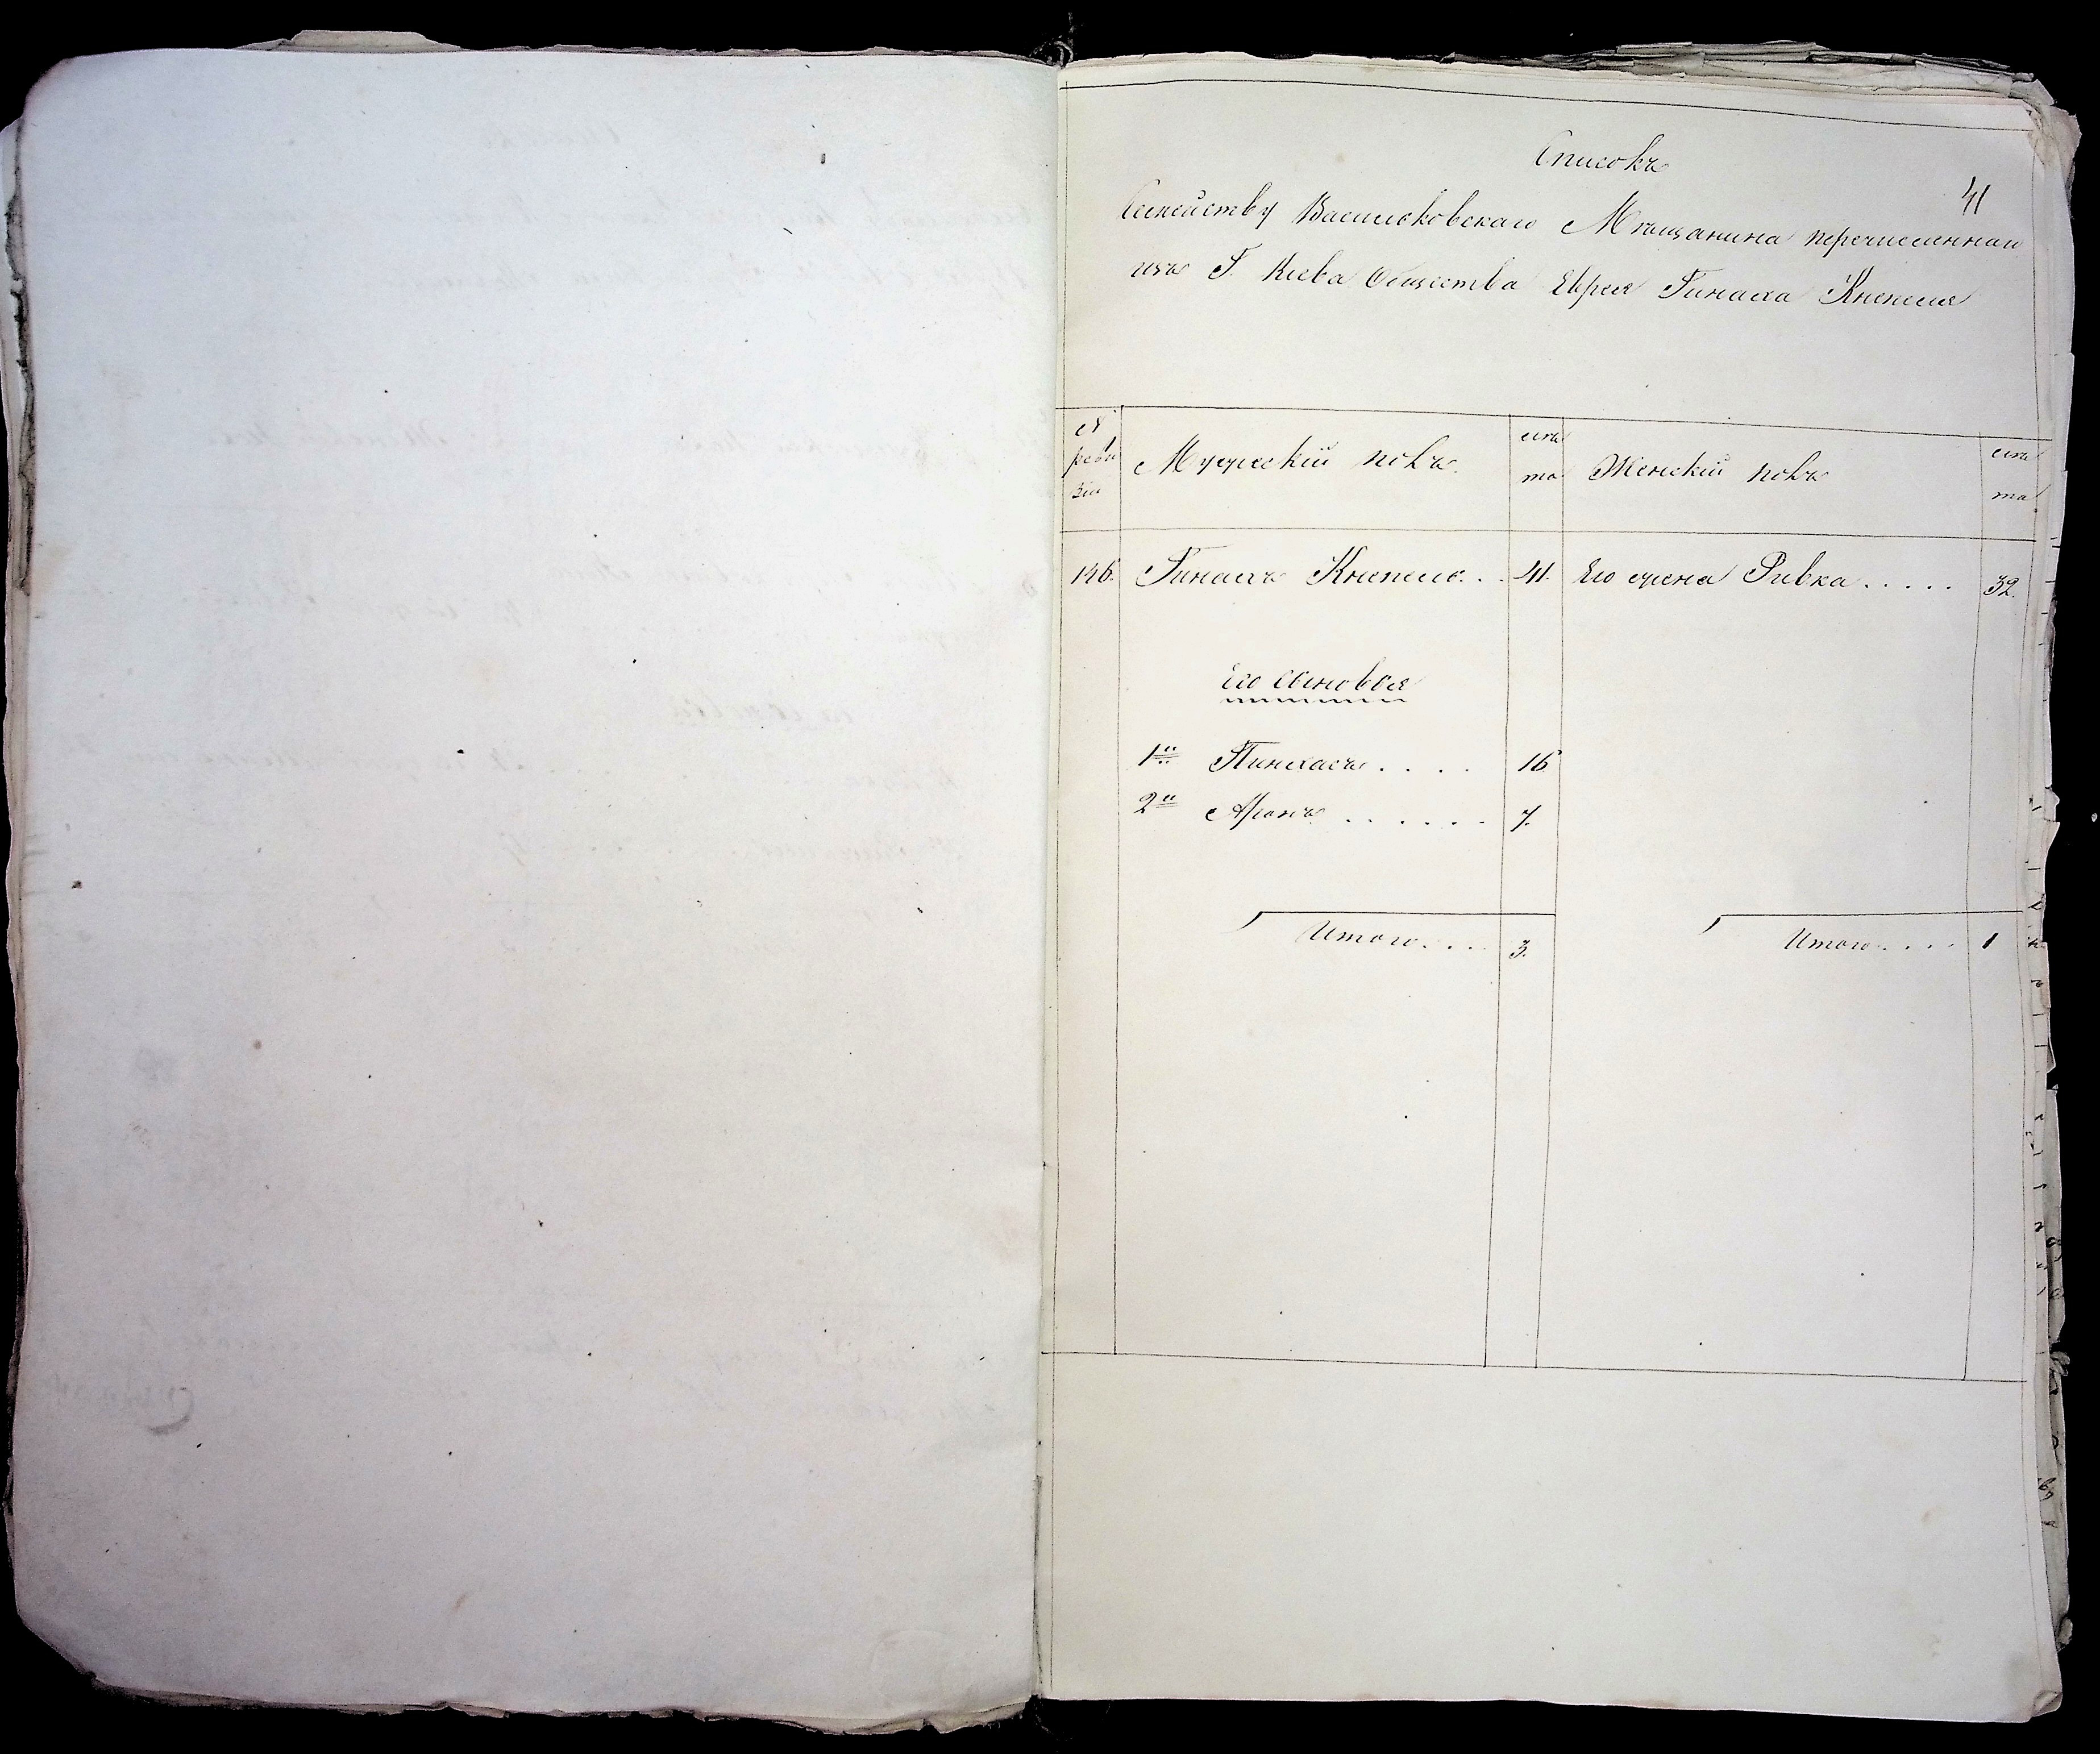 Списокъ
41
Семейству Васильковскаго Мѣщанина перечисленнаго
изъ Г. Кіева Общества Еврея Гинаха Кнепеля
№
реви
зіи
Мужескій полъ
лѣ
та
Женскій полъ
лѣ
та
146. Гинахъ Кнепель . . 41. Его жена Ривка . . . . . 32.
Его сыновья
1й Пинхасъ . . . . 16
2й Аронъ . . . . . . 7.
Итого . . . 3. Итого . . . . 1